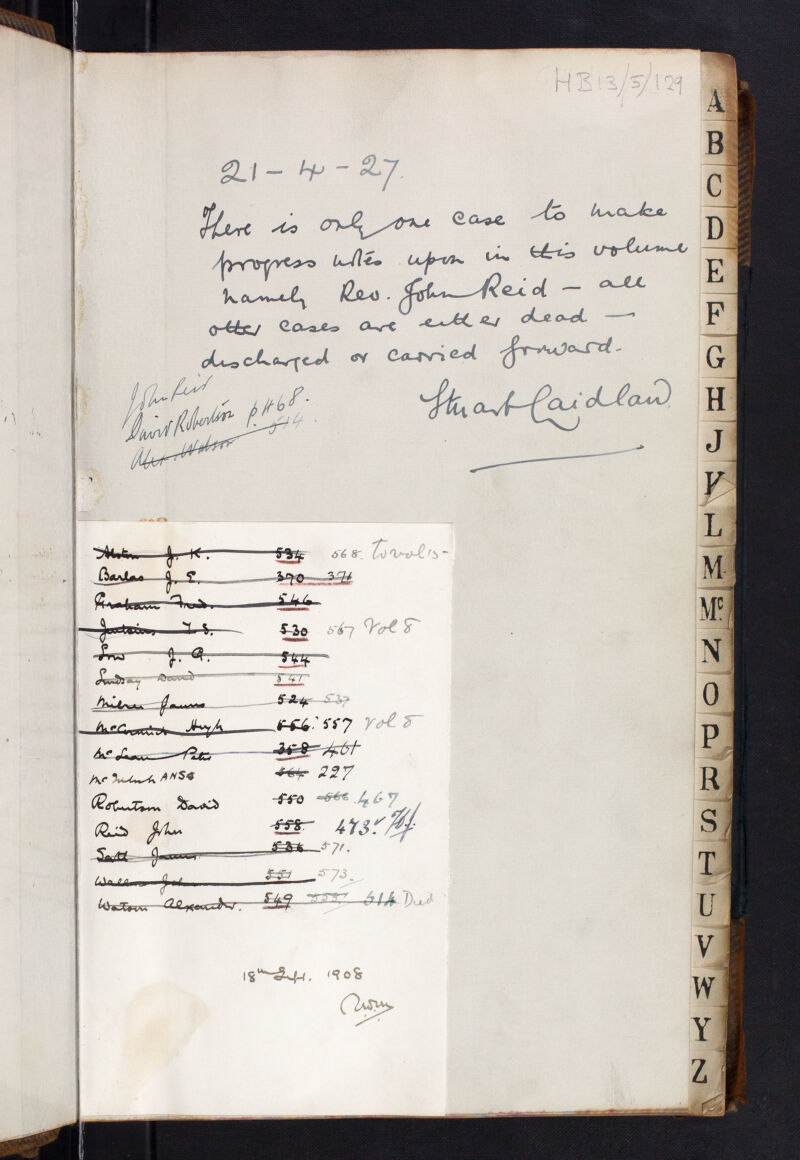 HB13/5/129
21-4-27.
There is only one case to make
progress notes upon in this volume
namely Rev. John Reid - all
other cases are either dead -
discharged or carried forward.
Stuart Laidlaw
John Reid
David Robertson p 468.
Alex. Watson 514
J. K. 534 568. to vol
Barlas J. E. 370 371
Graham Fred. 546
Jenkins T. S. 530 567 Vol 8
Low J. A. 544
Lindsay David 541
Milne James 524 537
McCormick Hugh 556 557 Vol 8
McLean Peter 358 461
McIntosh ANSG 564 227
Robertson David 550 566 467
Reid John 558. 473
James 536 571.
John 551 573.
Watson Alexander. 549 555 514 Died
18th Sept. 1908
A
B
C
D
E
F
G
H
J
K
L
M
Mc
N
O
P
R
S
T
U
V
W
Y
Z